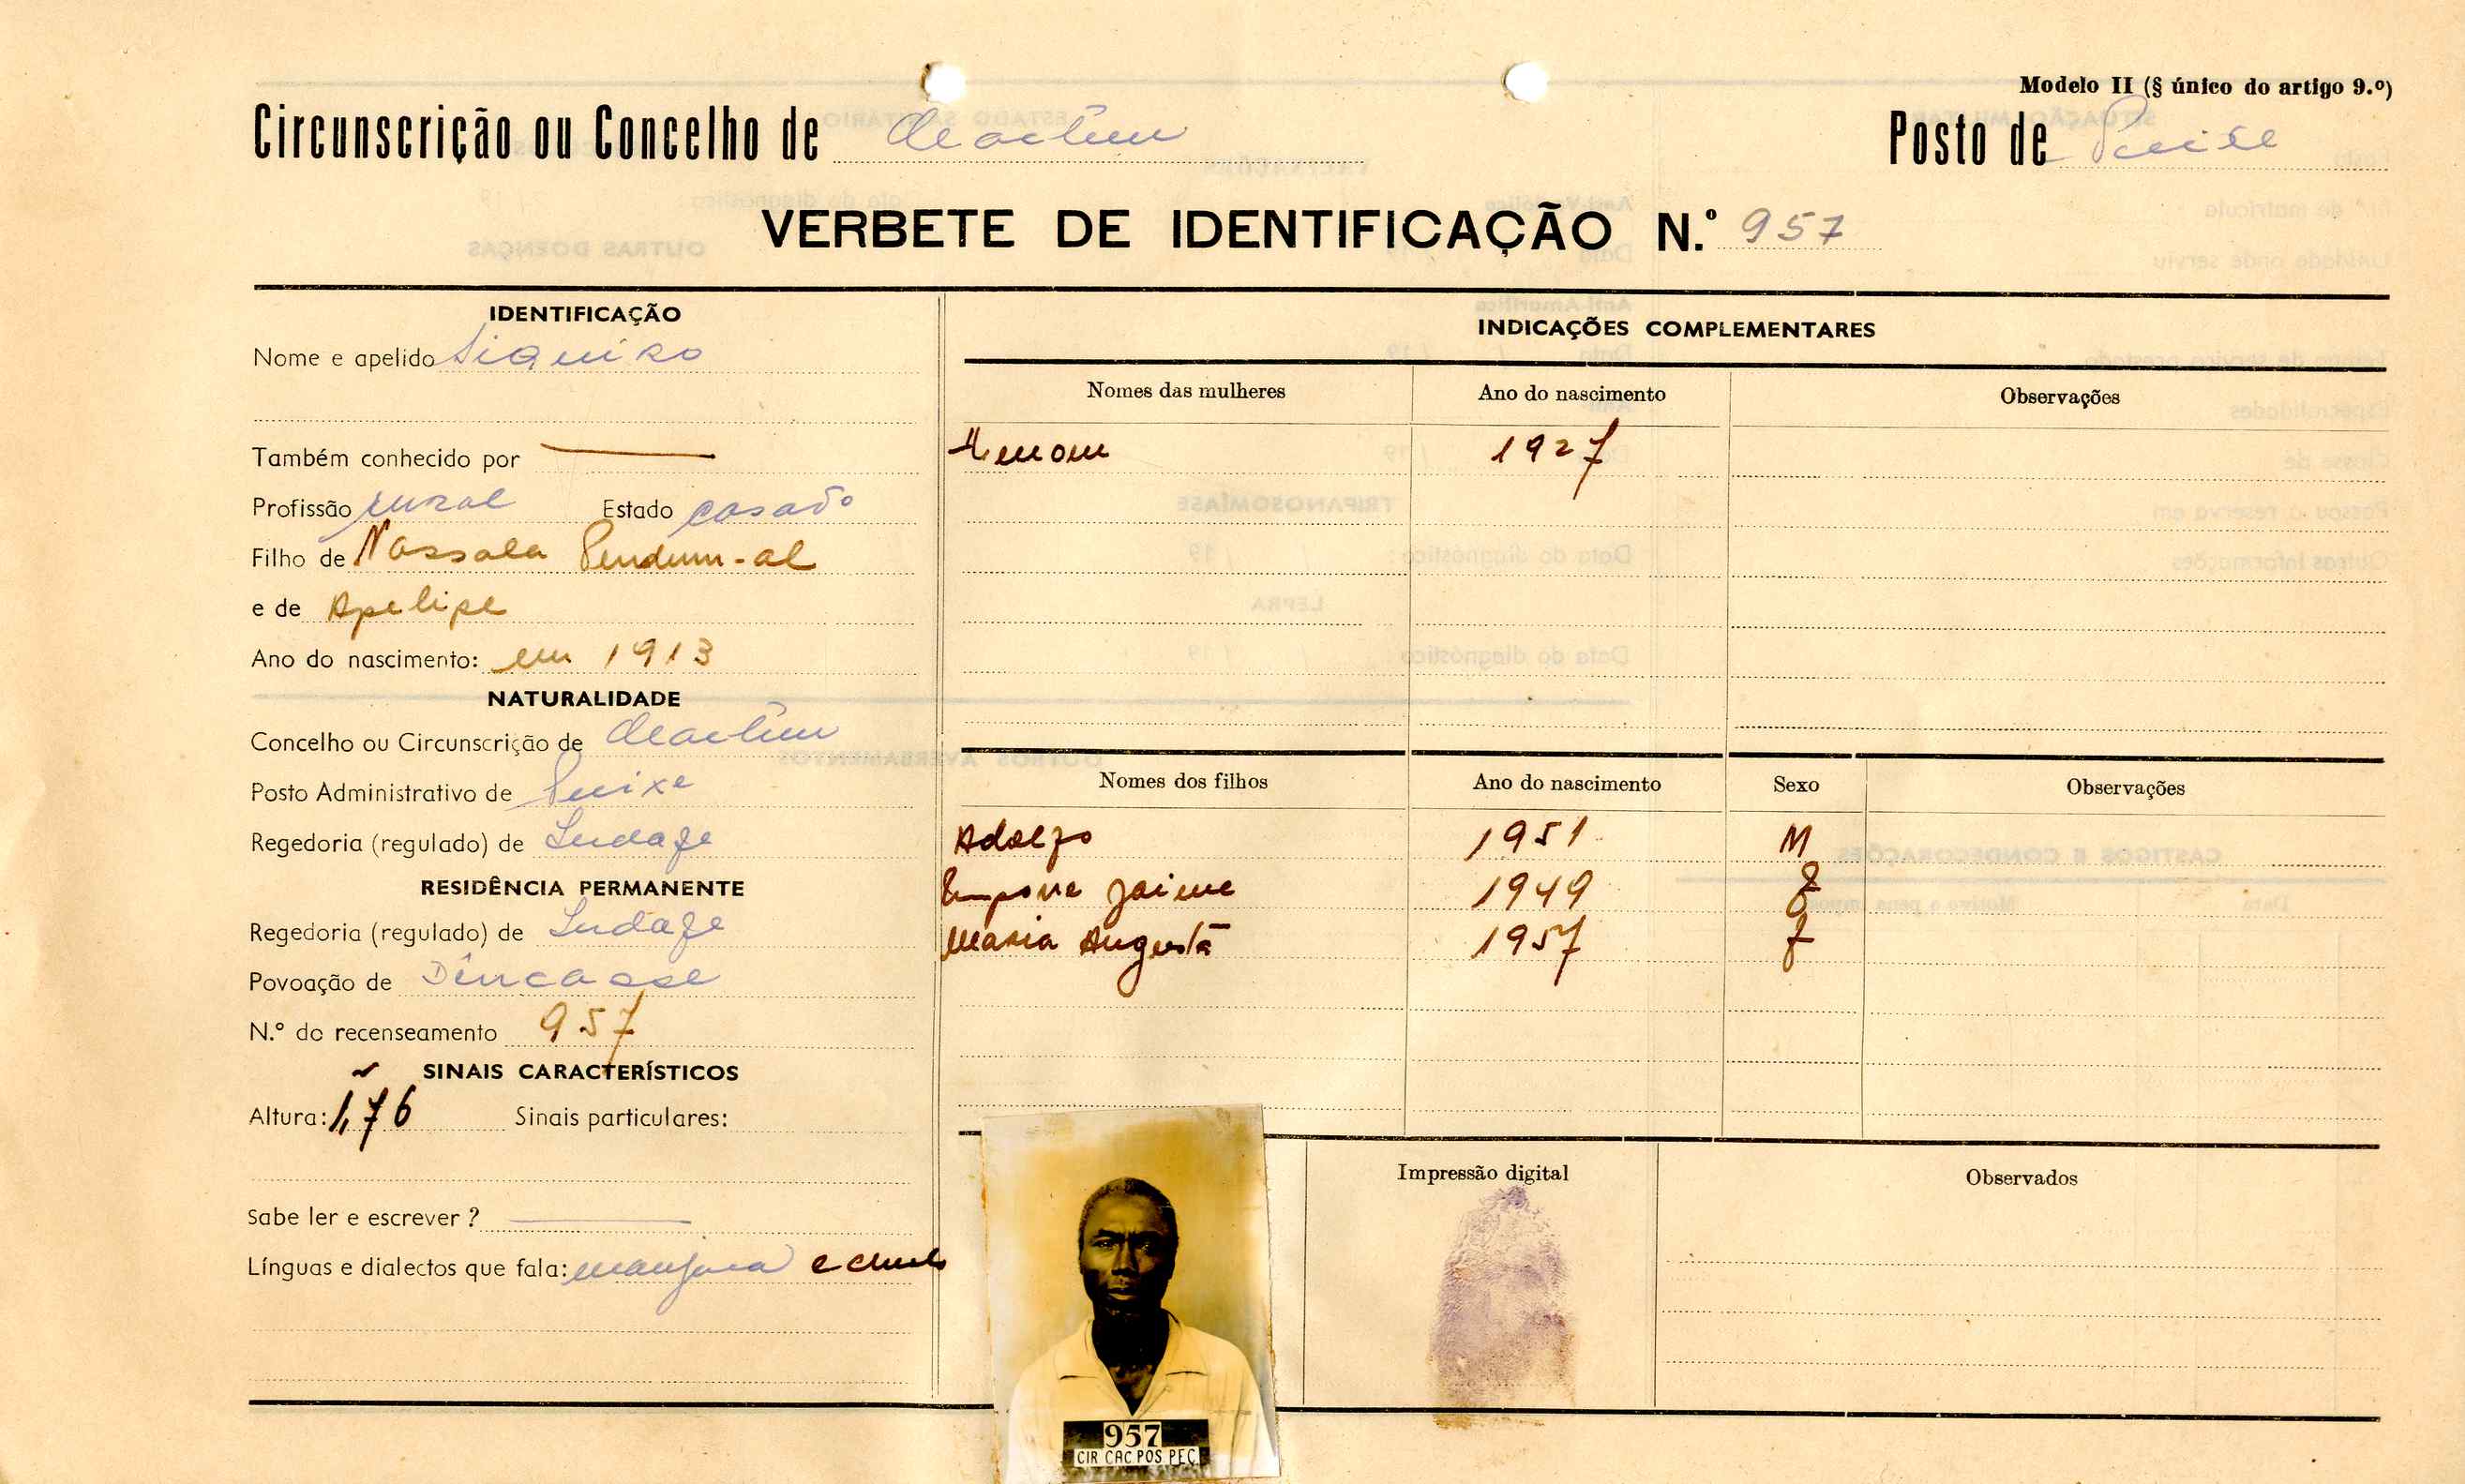 Modelo II (§ único do artigo 9.º)
Circunscrição ou Concelho de
Posto de
VERBETE DE IDENTIFICAÇÃO N.º 957
IDENTIFICAÇÃO
Nome e apelido
Também conhecido por
Profissão rural Estado casado
Filho de Nassala
e de Apelipe
Ano do nascimento: em 1913
NATURALIDADE
Concelho ou Circunscrição de
Posto Administrativo de
Regedoria (regulado) de
RESIDÊNCIA PERMANENTE
Regedoria (regulado) de
Povoação de
N.º do recenseamento 957
SINAIS CARACTERÍSTICOS
Altura: 1,76 Sinais particulares:
Sabe ler e escrever ?
Línguas e dialectos que fala: e
INDICAÇÕES COMPLEMENTARES
Nomes das mulheres Ano do nascimento Observações
1927
Nomes dos filhos Ano do nascimento Sexo Observações
Adolfo 1951 M
Jaime 1949
Maria Augusta 1957 f
Impressão digital
Observados
957
CIR CAC POS PEÇ